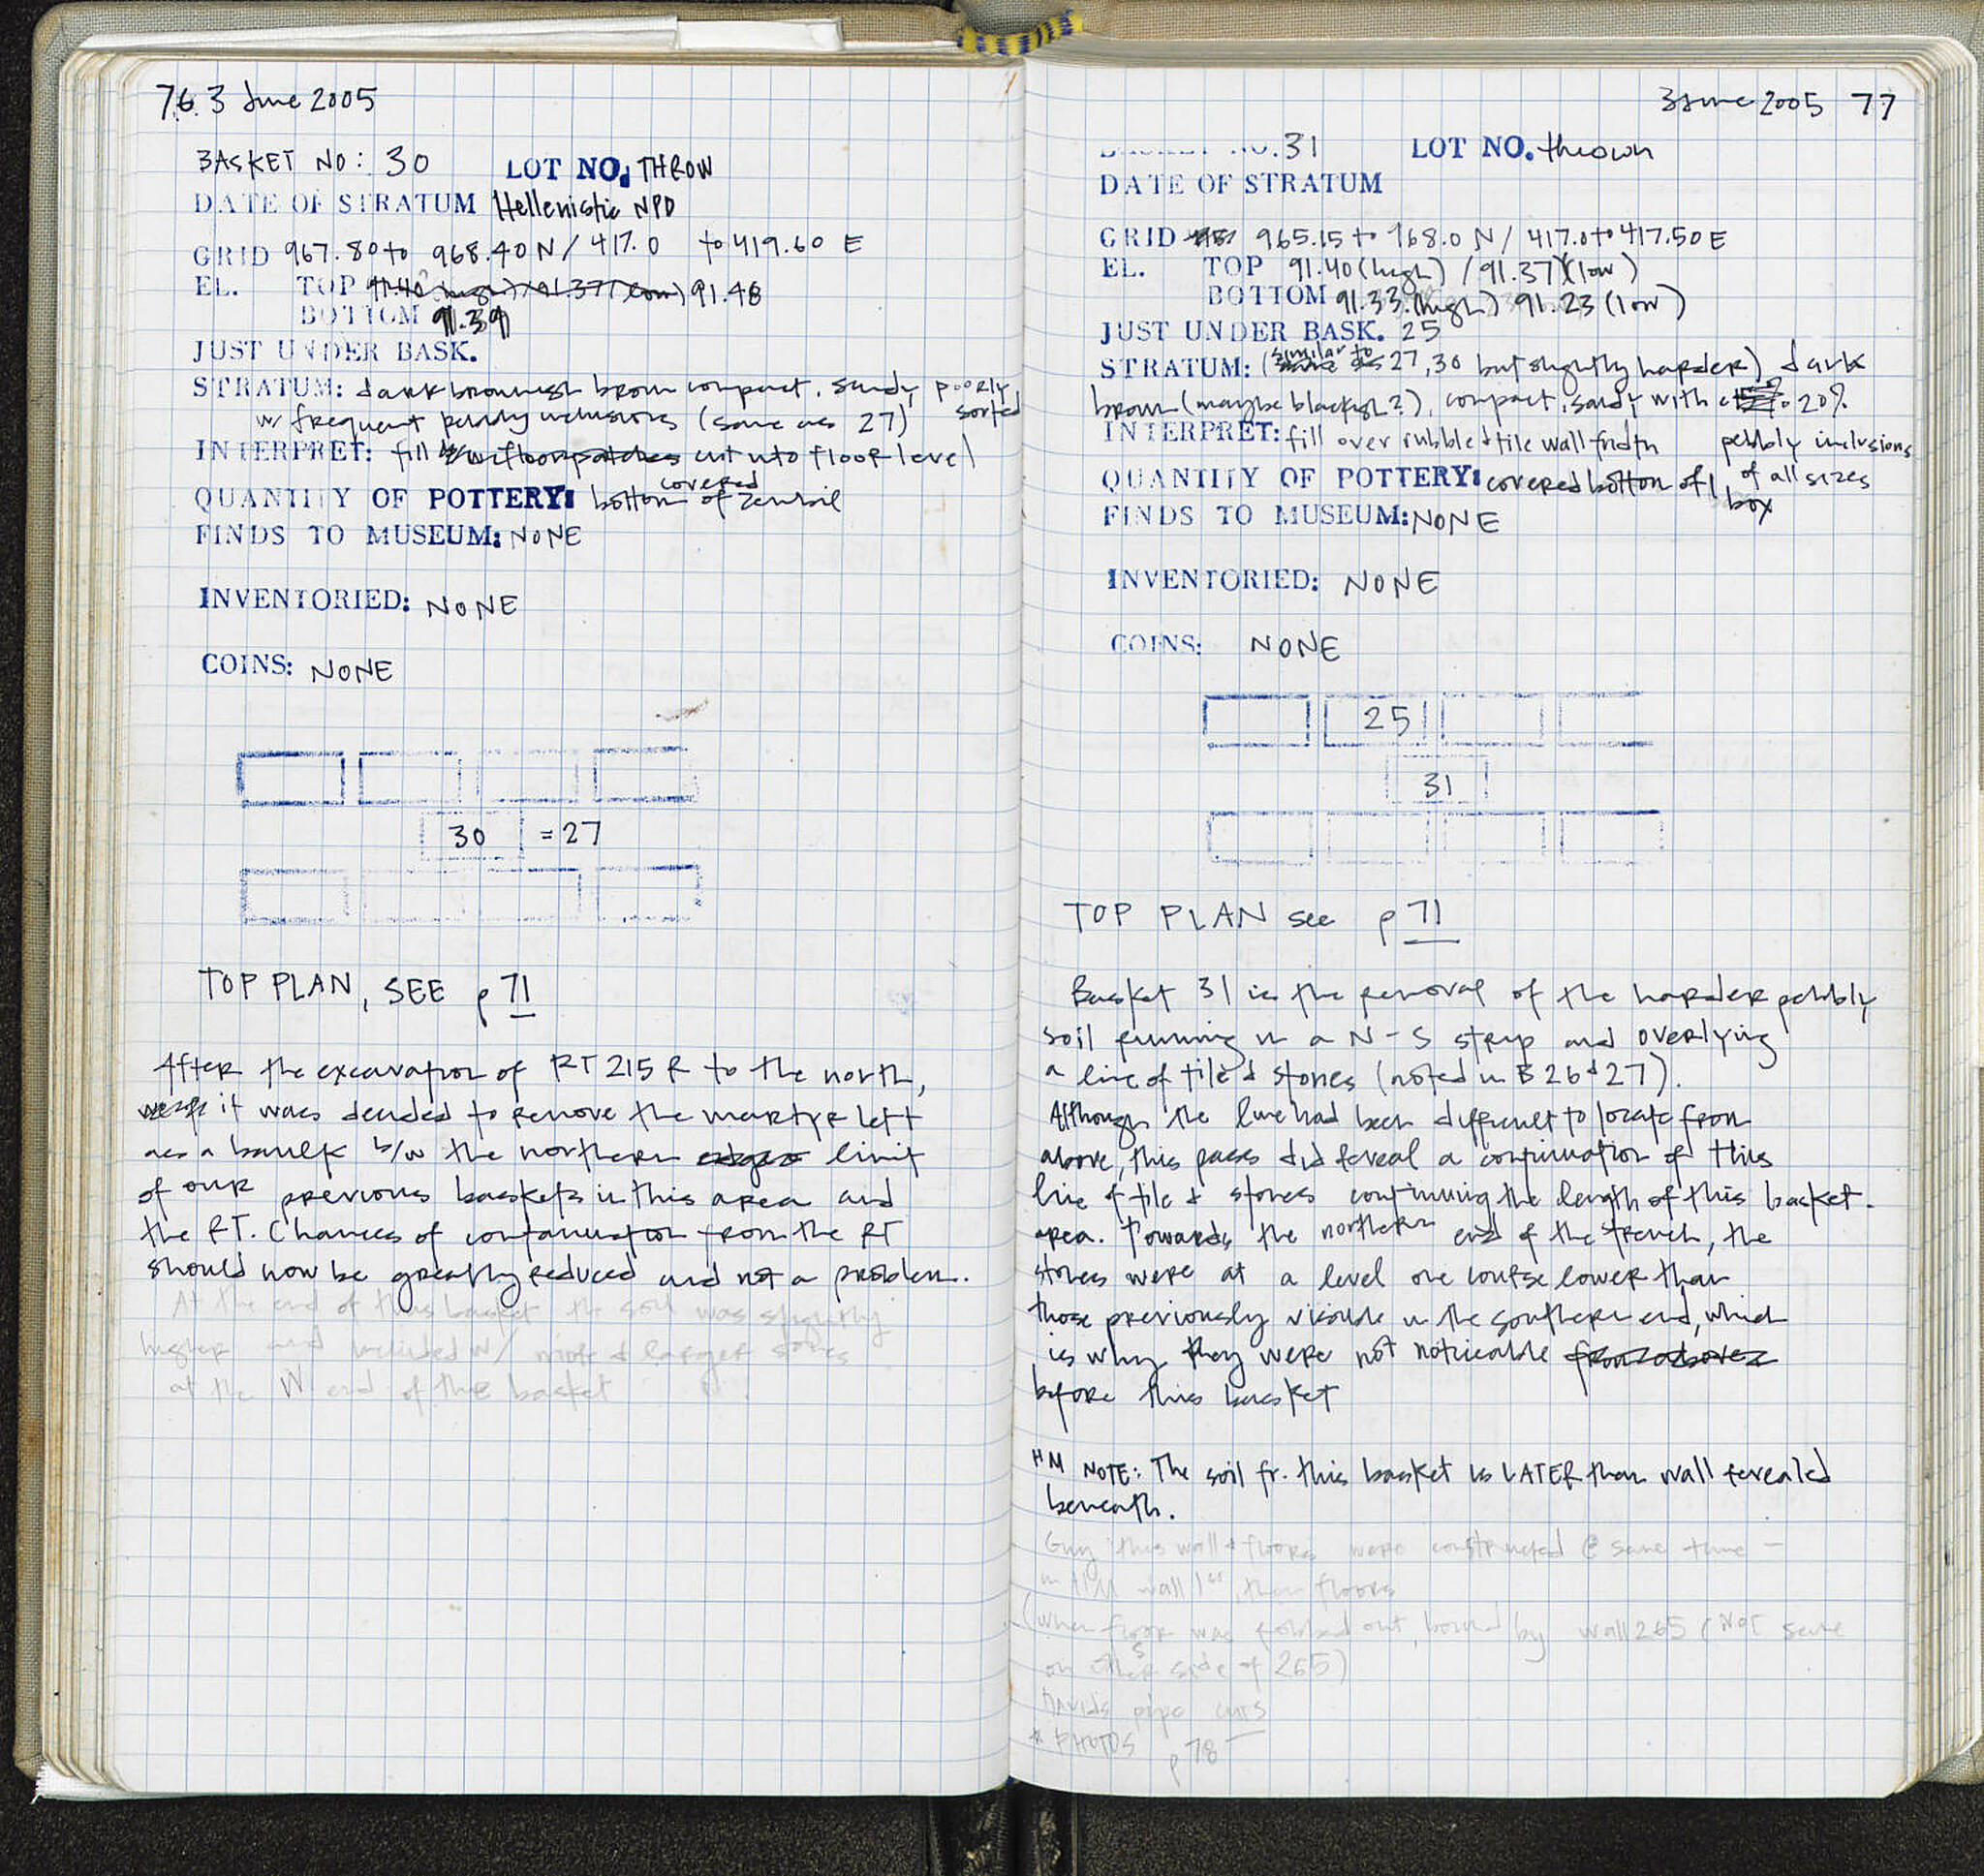 76. 3 June 2005
BASKET NO: 30 LOT NO. THROW
DATE OF STRATUM Hellenistic NPD
GRID 967.80 to 968.40 N / 417.0 to 419.60 E
EL. TOP 91.40 (high) / 91.37 (low) 91.48
BOTTOM 91.39
JUST UNDER BASK.
STRATUM: dark brownish brown compact, sandy, poorly sorted
w/ frequent pebbly inclusions (same as 27)
INTERPRET: fill w/ floor patches cut into floor level
QUANTITY OF POTTERY: covered bottom of zembil
FINDS TO MUSEUM: NONE
INVENTORIED: NONE
COINS: NONE
30 = 27
TOP PLAN, SEE p 71
After the excavation of RT 215 R to the north,
it was decided to remove the martyr left
as a baulk b/w the northern edges limit
of our previous baskets in this area and
the RT. Chances of contamination from the RT
should now be greatly reduced and not a problem.
At the end of this basket the soil was slightly
higher and included w/ more & larger stones
at the W end of the basket
3 June 2005 77
BASKET NO. 31 LOT NO. thrown
DATE OF STRATUM
GRID 965.15 to 968.0 N / 417.0 to 417.50 E
EL. TOP 91.40 (high) / 91.37 (low)
BOTTOM 91.33 (high) 91.23 (low)
JUST UNDER BASK. 25
STRATUM: (same as similar to 27, 30 but slightly harder) dark
brown (maybe blackish?), compact, sandy with 20%
pebbly inclusions of all sizes
INTERPRET: fill over rubble & tile wall fndtn
QUANTITY OF POTTERY: covered bottom of 1 box
FINDS TO MUSEUM: NONE
INVENTORIED: NONE
COINS: NONE
25
31
TOP PLAN see p 71
Basket 31 is the removal of the harder pebbly
soil running in a N-S strip and overlying
a line of tile & stones (noted in B 26 & 27).
Although the line had been difficult to locate from
above, this pass did reveal a continuation of this
line of tile & stones continuing the length of this basket.
area. Towards the northern end of the trench, the
stones were at a level one course lower than
those previously visible in the southern end, which
is why they were not noticeable from above
before this basket
HM NOTE: The soil fr. this basket is LATER than wall revealed
beneath.
Guy: this wall & floors were constructed @ same time –
wall 1st, then floors
(when floor was robbed out, bound by wall 265 (NOT same
on other side of 265)
Davids pipe cuts
* PHOTOS p 78